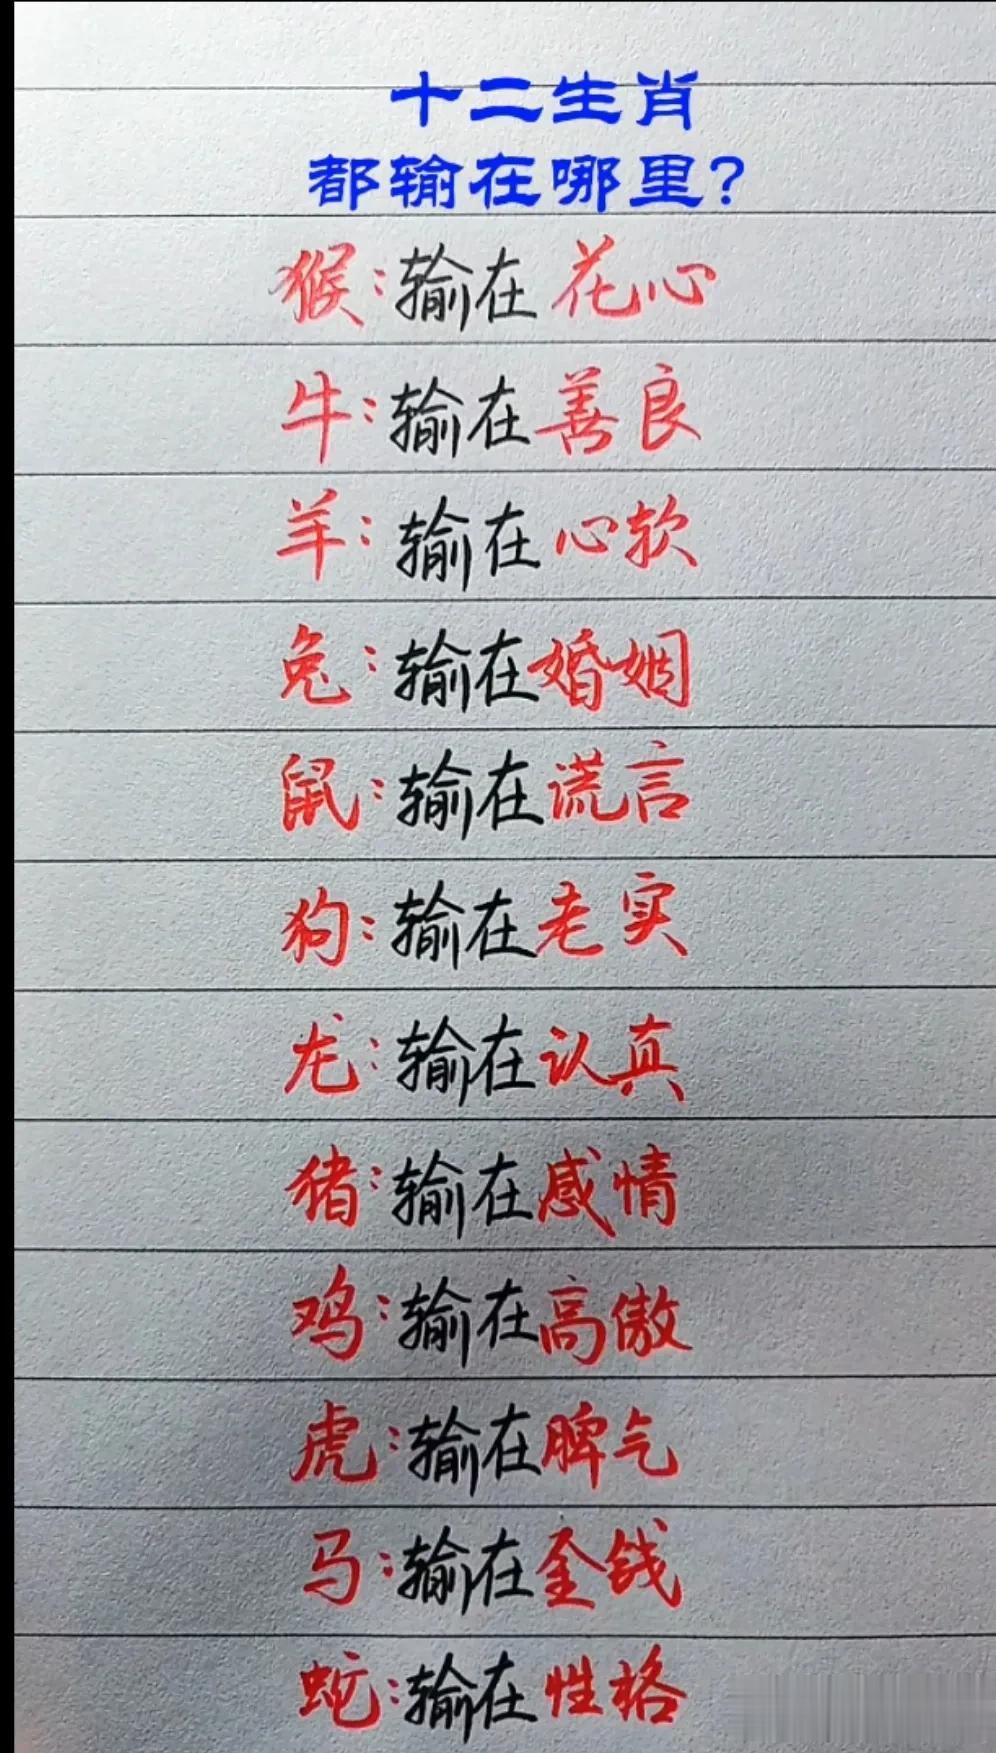 十二生肖
都输在哪里？
猴：输在花心
牛：输在善良
羊：输在心软
兔：输在婚姻
鼠：输在谎言
狗：输在老实
龙：输在认真
猪：输在感情
鸡：输在高傲
虎：输在脾气
马：输在金钱
蛇：输在性格